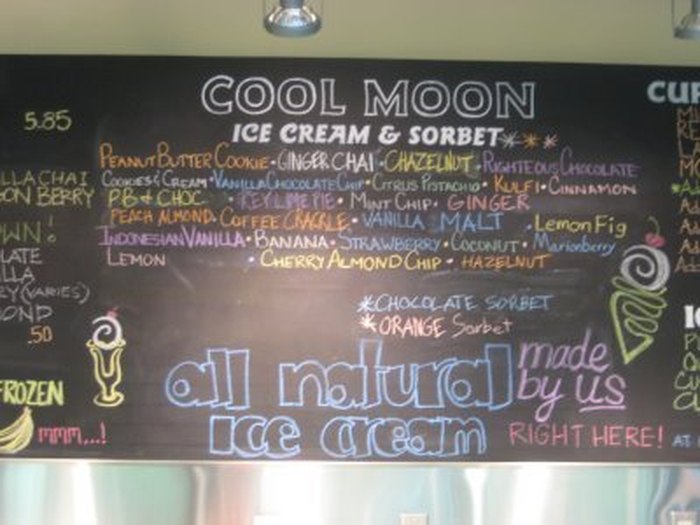 COOL MOON
ICE CREAM & SORBET***
PEANUT BUTTER COOKIE • GINGER CHAI • CHAZELNUT • RIGHTEOUS CHOCOLATE
COOKIES & CREAM • VANILLA CHOCOLATE CHIP • CITRUS PISTACHIO • KULFI • CINNAMON
PB & CHOC • KEY LIME PIE • MINT CHIP • GINGER
PEACH ALMOND • COFFEE CRACKLE • VANILLA MALT • Lemon Fig
INDONESIAN VANILLA • BANANA • STRAWBERRY • COCONUT • Marionberry
LEMON • CHERRY ALMOND CHIP • HAZELNUT
*CHOCOLATE SORBET
*ORANGE Sorbet
all natural
ice cream
made
by us
RIGHT HERE!
5.85
LLA CHAI
ON BERRY
WN!
LATE
LLA
EY (VARIES)
OND
.50
FROZEN
mmm...!
CUP
AT